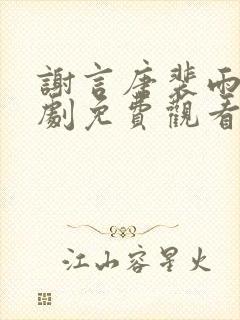 謝言唐裴雨
劇免費觀看
江山容星火